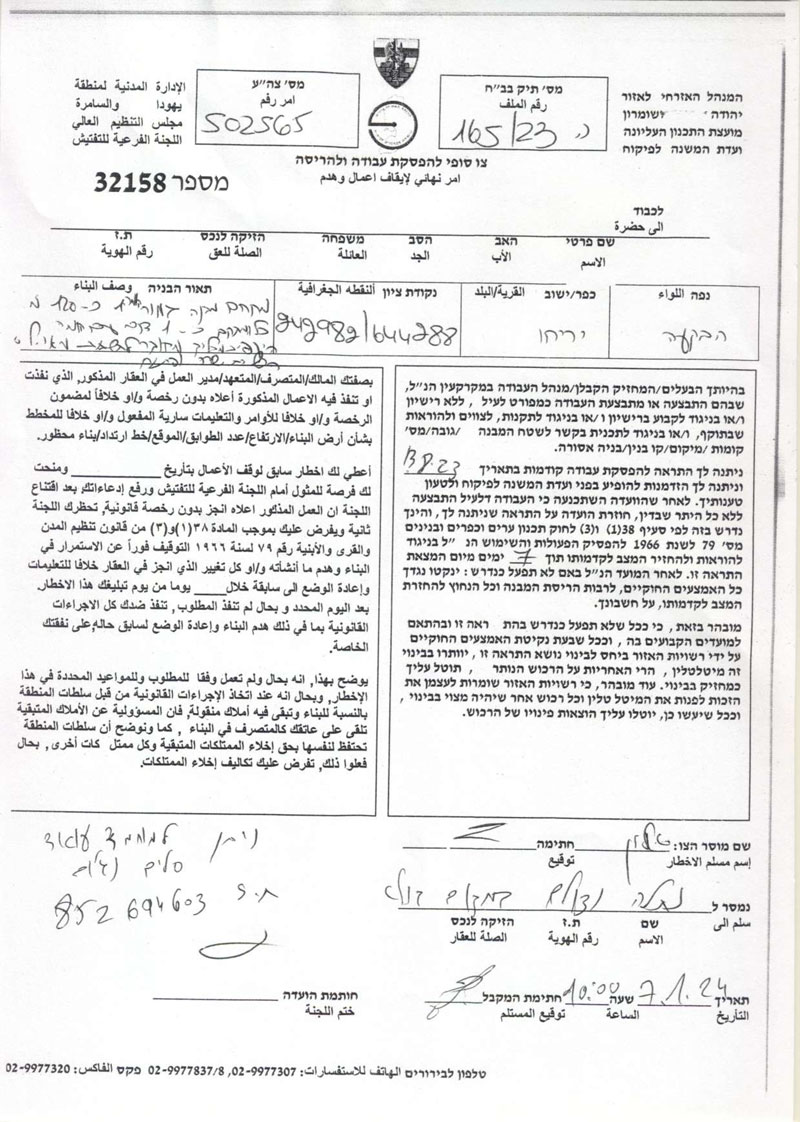 המנהל האזרחי לאזור
יהודה ושומרון
מועצת התכנון העליונה
ועדת המשנה לפיקוח
מס׳ תיק בב״ח
رقم الملف
ה 165/23
מס׳ צה״ע
امر رقم
502565
الإدارة المدنية لمنطقة
يهودا والسامرة
مجلس التنظيم العالي
اللجنة الفرعية للتفتيش
צו סופי להפסקת עבודה ולהריסה
امر نهائي لإيقاف اعمال وهدم
מספר 32158
לכבוד
الى حضرة
שם פרטי האב הסב משפחה הזיקה לנכס ת.ז
الاسم الأب الجد العائلة الصلة للعق رقم الهوية
נפה اللواء כפר/ישוב القرية/البلد נקודת ציון النقطه الجغرافية תאור הבניה وصف البناء
הבקעה יריחו 242982/644288
בהיותך הבעלים/המחזיק הקבלן/מנהל העבודה במקרקעין הנ״ל,
שבהם התבצעה או מתבצעת העבודה כמפורט לעיל , ללא רישיון
ו/או בניגוד לקבוע ברישיון ו/או בניגוד לתקנות, לצווים ולהוראות
שבתוקף, ו/או בניגוד לתכנית בקשר לשטח המבנה /גובה/מס׳
קומות /מיקום/קו בנין/בניה אסורה.
ניתנה לך התראה להפסקת עבודה קודמות בתאריך
וניתנה לך הזדמנות להופיע בפני ועדת המשנה לפיקוח ולטעון
טענותיך. לאחר שהוועדה השתכנעה כי העבודה דלעיל התבצעה
ללא כל היתר שבדין, חוזרת הועדה על התראה שניתנה לך, והינך
נדרש בזה לפי סעיף 38(1) ו(3) לחוק תכנון ערים וכפרים ובנינים
מס׳ 79 לשנת 1966 להפסיק הפעולות והשימוש הנ ״ל בניגוד
להוראות ולהחזיר המצב לקדמותו תוך 7 ימים מיום המצאת
התראה זו. לאחר המועד הנ״ל באם לא תפעל כנדרש : ינקטו נגדך
כל האמצעים החוקיים, לרבות הריסת המבנה וכל הנחוץ להחזרת
המצב לקדמותו, על חשבונך.
מובהר בזאת , כי ככל שלא תפעל כנדרש בהת ראה זו ובהתאם
למועדים הקבועים בה , וככל שבעת נקיטת האמצעים החוקיים
על ידי רשויות האזור ביחס לבינוי נושא התראה זו , יוותרו בבינוי
זה מיטלטלין , הרי האחריות על הרכוש הנותר , תוטל עליך
כמחזיק בבינוי. עוד מובהר, כי רשויות האזור שומרות לעצמן את
הזכות לפנות את המיטל טלין וכל רכוש אחר שיהיה מצוי בבינוי ,
וככל שיעשו כן, יוטלו עליך הוצאות פינויו של הרכוש.
بصفتك المالك/المتصرف/المتعهد/مدير العمل في العقار المذكور, الذي نفذت
او تنفذ فيه الاعمال المذكورة أعلاه بدون رخصة و/او خلافا لمضمون
الرخصة و/او خلافا للأوامر والتعليمات سارية المفعول و/او خلافا للمخطط
بشأن أرض البناء/الارتفاع/عدد الطوابق/الموقع/خط ارتداد/بناء محظور.
أعطي لك اخطار سابق لوقف الأعمال بتأريخ ومنحت
لك فرصة للمثول أمام اللجنة الفرعية للتفتيش ورفع إدعاءاتك, بعد اقتناع
اللجنة ان العمل المذكور اعلاه انجز بدون رخصة قانونية, تحظرك اللجنة
ثانية ويفرض عليك بموجب المادة ٣٨(١)و(٣) من قانون تنظيم المدن
والقرى والأبنية رقم ٧٩ لسنة ١٩٦٦ التوقيف فوراً عن الاستمرار في
البناء وهدم ما أنشأته و/او كل تغيير الذي انجز في العقار خلافا للتعليمات
وإعادة الوضع الى سابقة خلال يوما من يوم تبليغك هذا الاخطار.
بعد اليوم المحدد و بحال لم تنفذ المطلوب , تنفذ ضدك كل الاجراءات
القانونية بما في ذلك هدم البناء وإعادة الوضع لسابق حاله, على نفقتك
الخاصة.
يوضح بهذا, انه بحال ولم تعمل وفقا للمطلوب وللمواعيد المحددة في هذا
الإخطار, وبحال انه عند اتخاذ الإجراءات القانونية من قبل سلطات المنطقة
بالنسبة للبناء وتبقى فيه أملاك منقولة, فان المسؤولية عن الأملاك المتبقية
تلقى على عاتقك كالمتصرف في البناء , كما ونوضح أن سلطات المنطقة
تحتفظ لنفسها بحق إخلاء الممتلكات المتبقية وكل ممتل كات أخرى, بحال
فعلوا ذلك, تفرض عليك تكاليف إخلاء الممتلكات.
שם מוסר הצו: חתימה
إسم مسلم الاخطار توقيع
נמסר ל
سلم الى
שם ת.ז הזיקה לנכס
الاسم رقم الهوية الصلة للعقار
תאריך 7.1.24 שעה 10:00 חתימת המקבל
التأريخ الساعة توقيع المستلم
ניתן
ת.ז 852694603
חותמת הועדה
ختم اللجنة
טלפון לבירורים الهاتف للاستفسارات: 02-9977307, 02-9977837/8 פקס الفاكس: 02-9977320